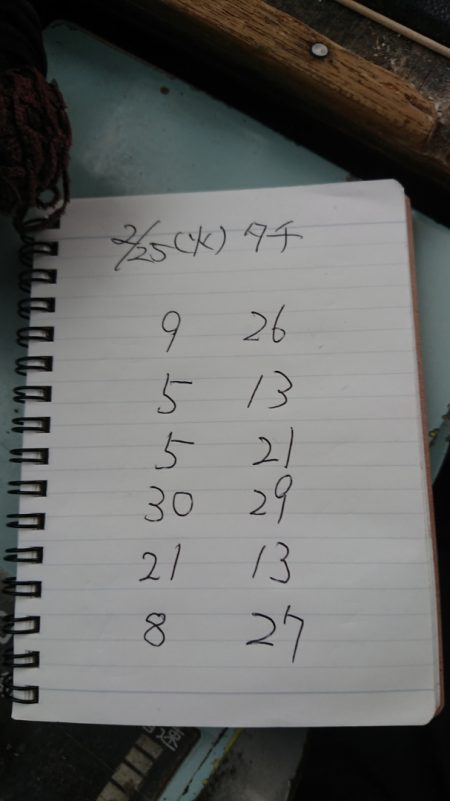 2/25(火) タチ
9 26
5 13
5 21
30 29
21 13
8 27
速